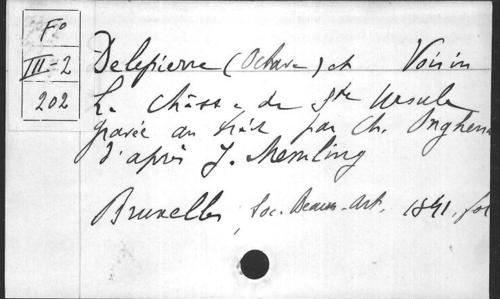 Fo
III-2
202
Delepierre (Octave) et Voisin
La Châsse de Ste Ursule
gravée au trait par Ch. Onghena
d'après J. Memling
Bruxelles, Soc. Beaux-Art. 1841, fol